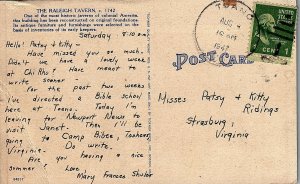 THE RALEIGH TAVERN, c. 1742
One of the most historic taverns of colonial America,
the building has been reconstructed on original foundations.
Its antique furniture and furnishings were secured on the basis of
inventories of its early keepers.
Saturday 8:10 P.M.
Hello! Patsy + Kitty -
Have missed you so much.
Didn't we have a lovely week
at Chi Rho? Have meant to
write sooner
for the past two weeks
I've directed a Bible school
here at Trona. Today I'm
leaving for Newport News to
visit Janet. Then I'll be
going to Camp Bibee, Toshees,
Virginia. Do write.
Are you having a nice
summer? Love
Mary Frances Shuler
AUG
PM
1947
POST CARD
1 CENT
Misses Patsy + Kitty
Ridings
Strasburg,
Virginia